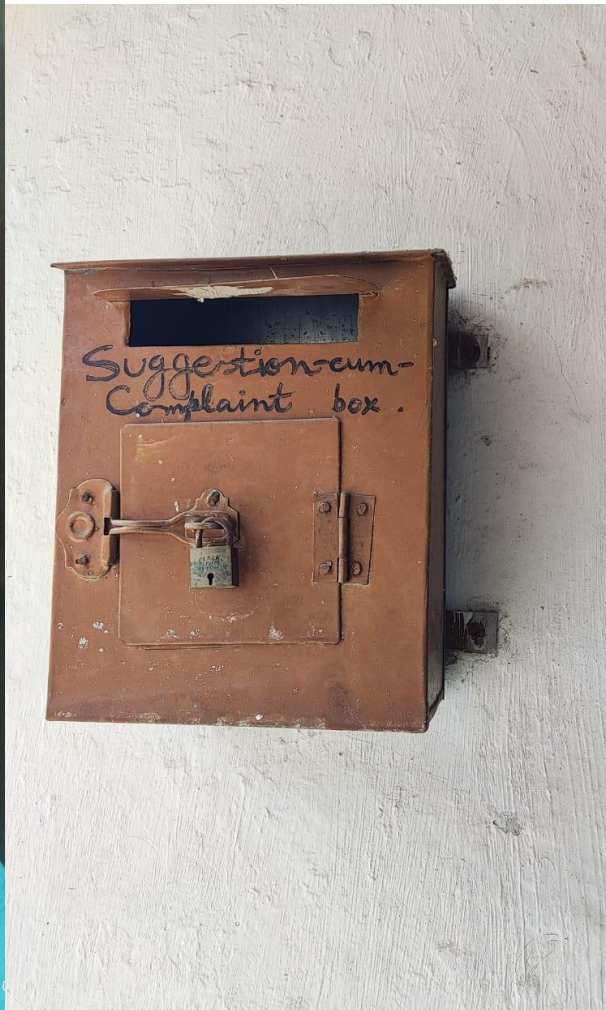 Suggestion-cum-
Complaint box.